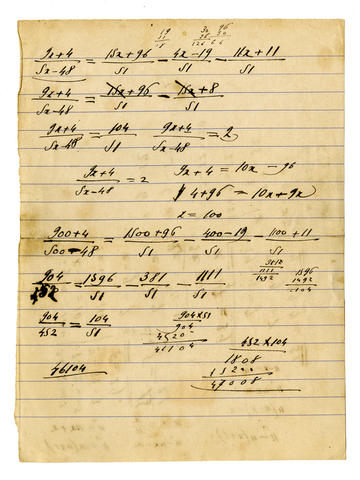 19 36 96
51 36 30
9x+4/5x-48 = 15x+96/51 - 4x-19/51 - 11x+11/51
9x+4/5x-48 = 15x+96/51 - 15x+8/51
9x+4/5x-48 = 104/51 9x+4/5x-48 = 2
9x+4/5x-48 = 2 9x+4 = 10x - 96
4+96 = 10x+9x
x = 100
900+4/500-48 = 1500+96/51 - 400-19/51 - 1100+11/51
904/452 = 1596/51 - 381/51 - 1111/51
1111 1596
1492 1492
104
904/452 = 104/51 904x51
904
4520
46104 452x104
1808
46104 47008